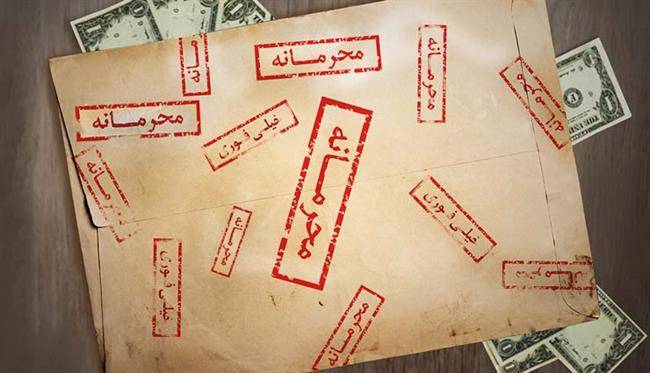 محرمانه
محرمانه
محرمانه
محرمانه
محرمانه
خیلی فوری
محرمانه
محرمانه
خیلی فوری
محرمانه
محرمانه
خیلی فوری
محرمانه